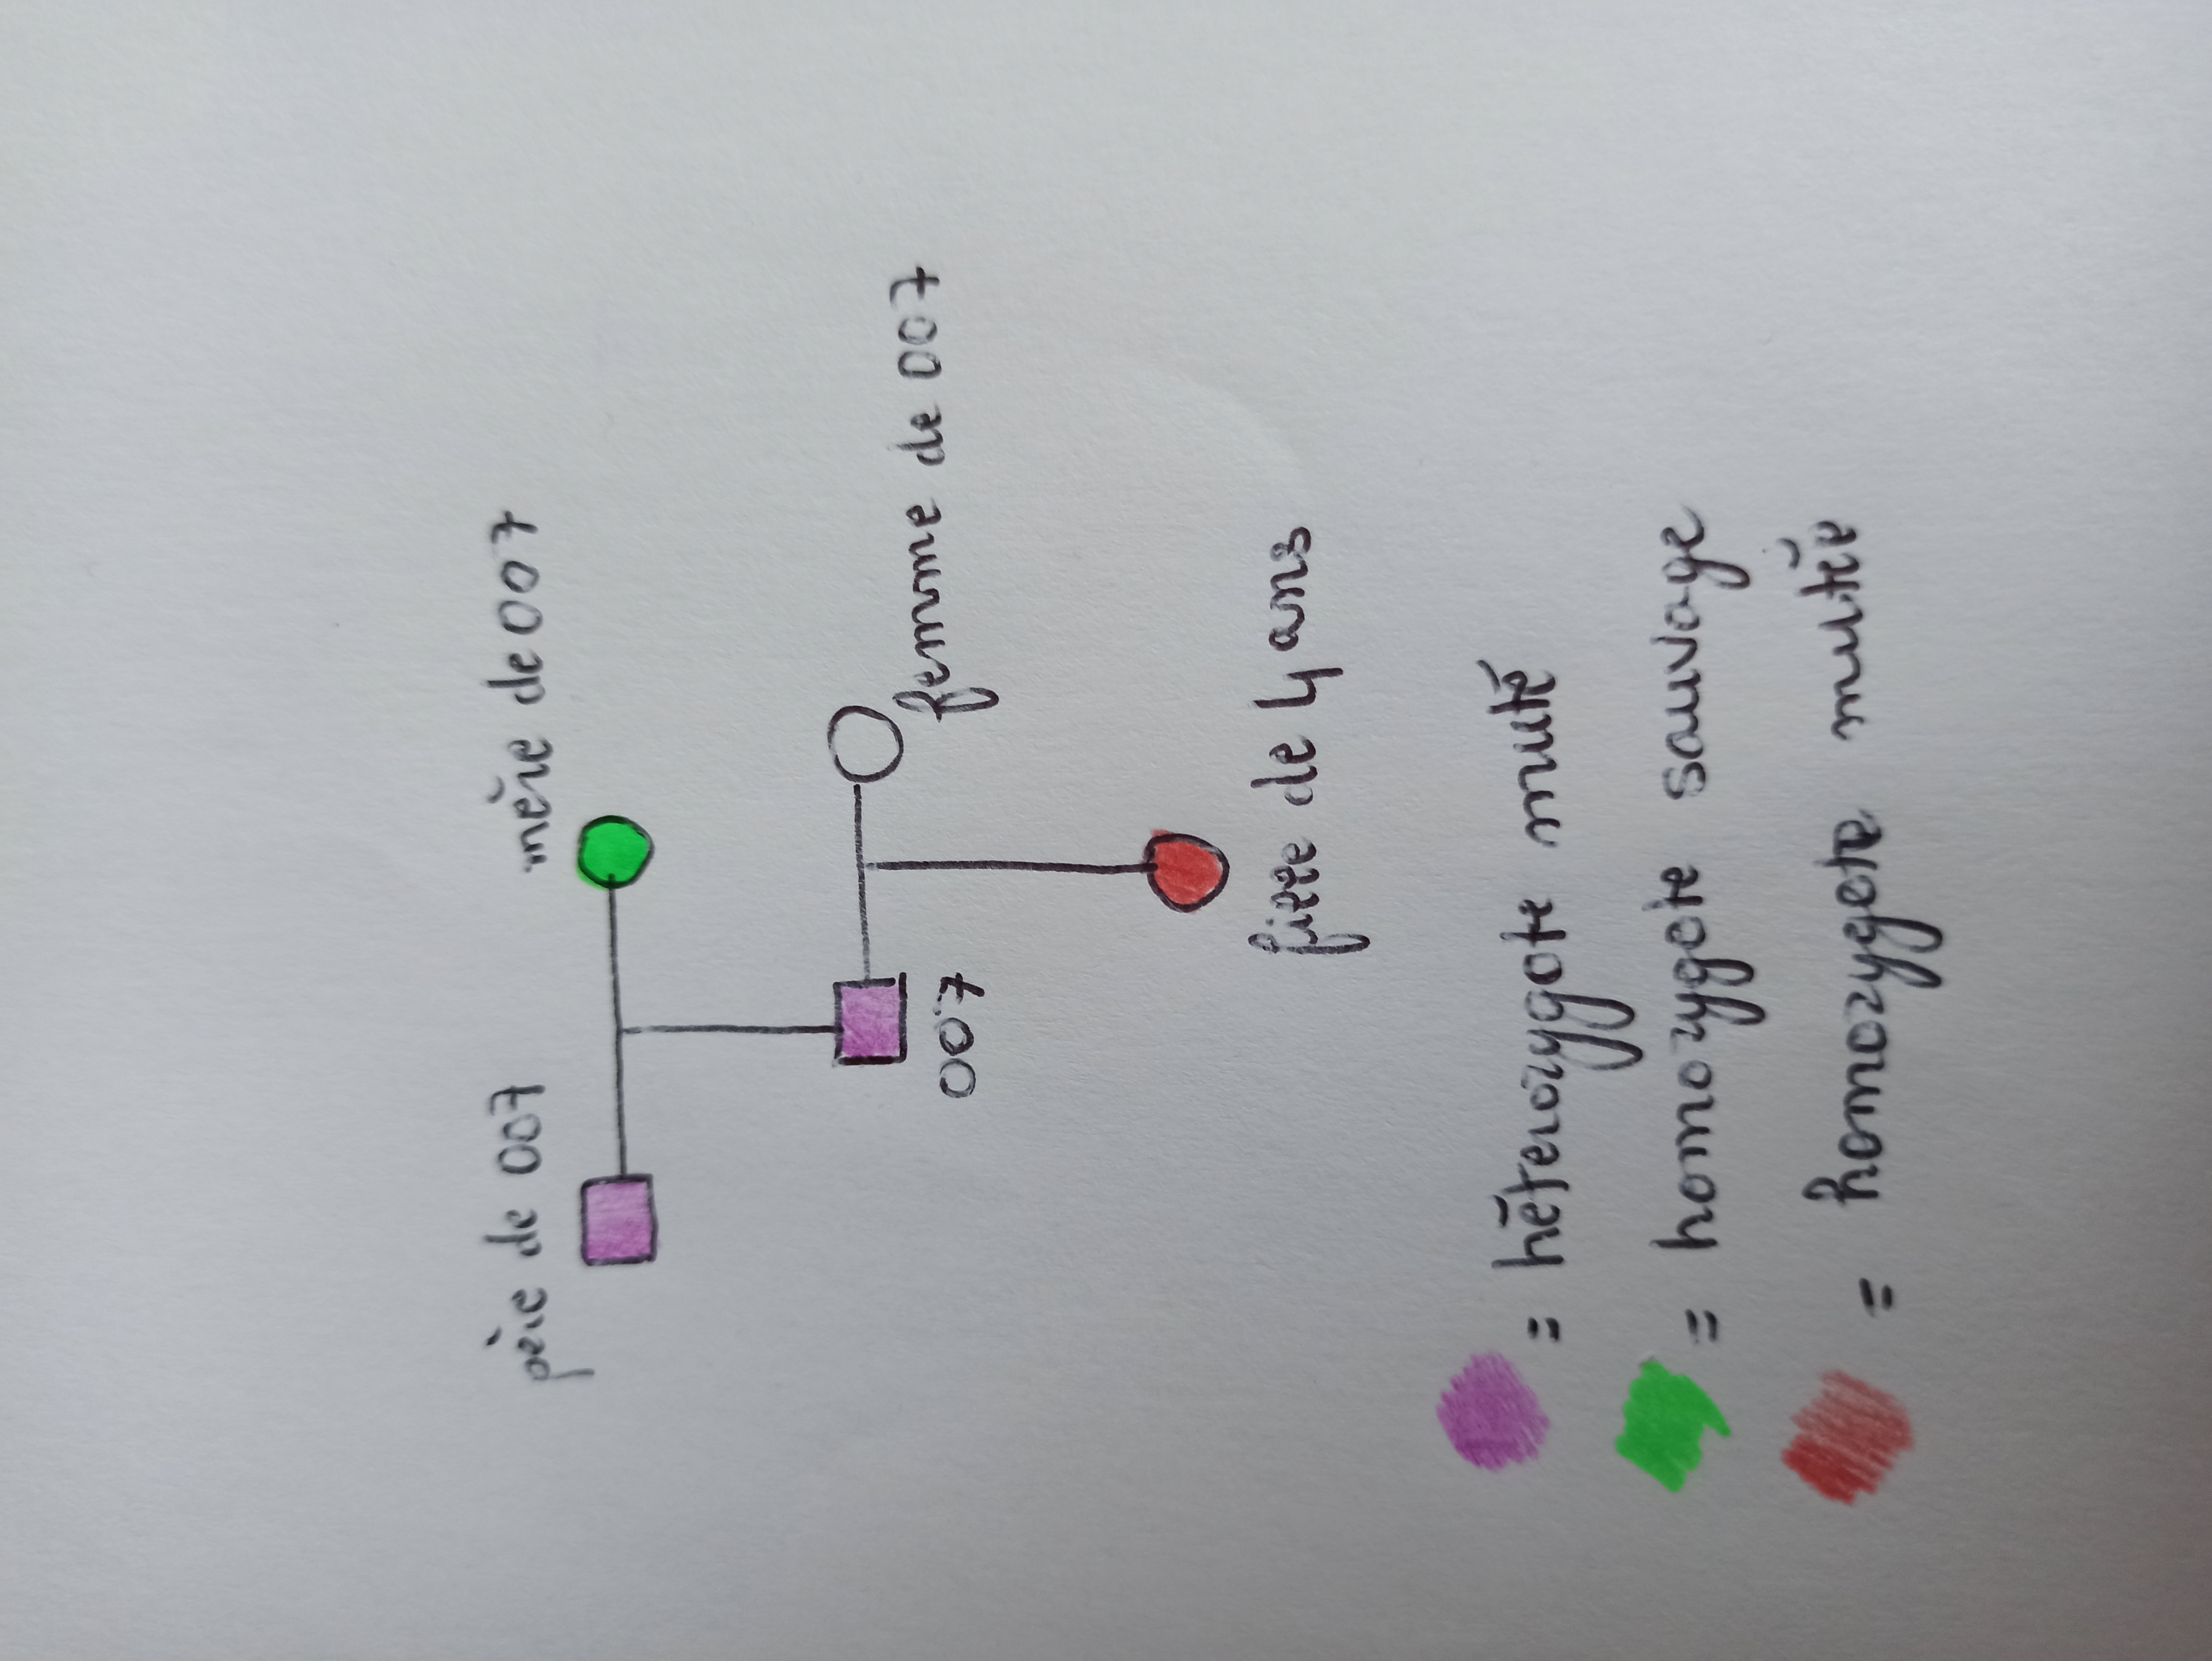 père de 007
mère de 007
femme de 007
007
fille de 4 ans
= hétérozygote muté
= homozygote sauvage
= homozygote mutée